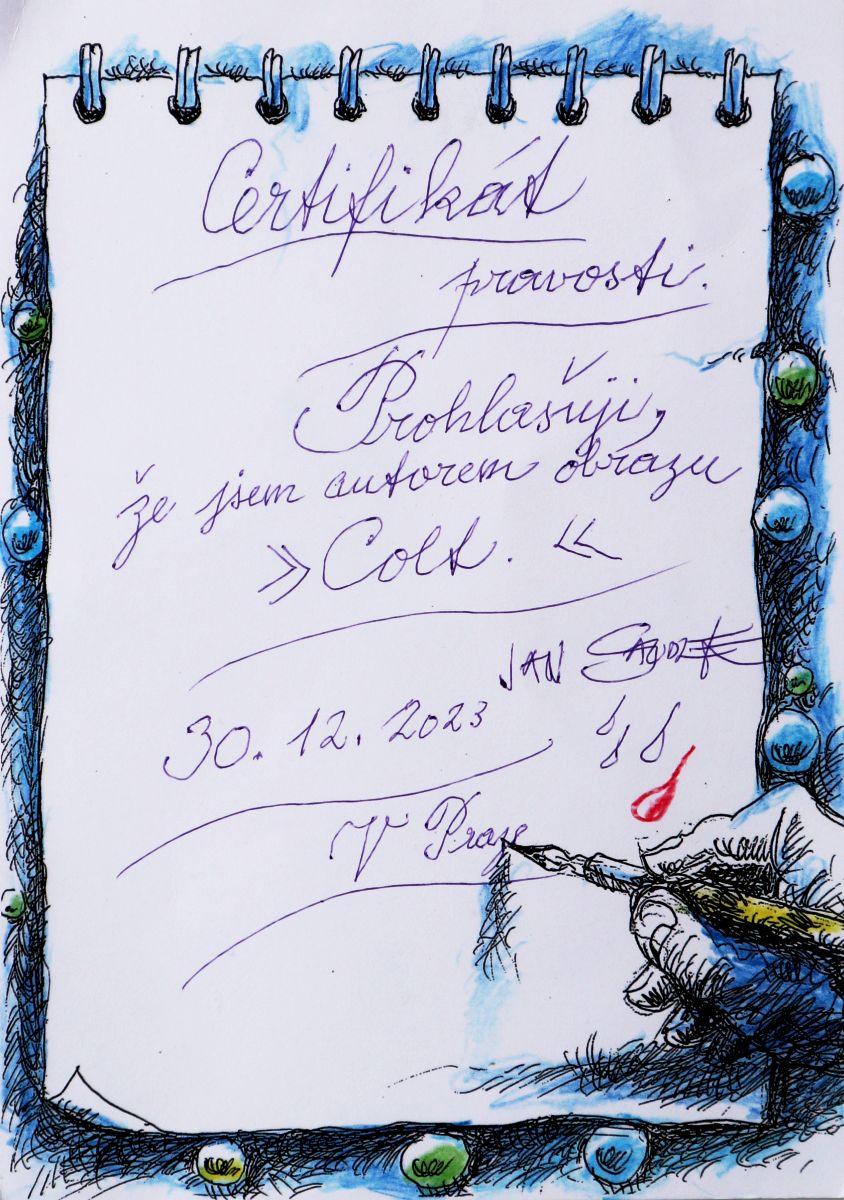 Certifikát
pravosti.
Prohlašuji,
že jsem autorem obrazu
»Colt.«
JAN SAUDEK
30. 12. 2023
V Praze